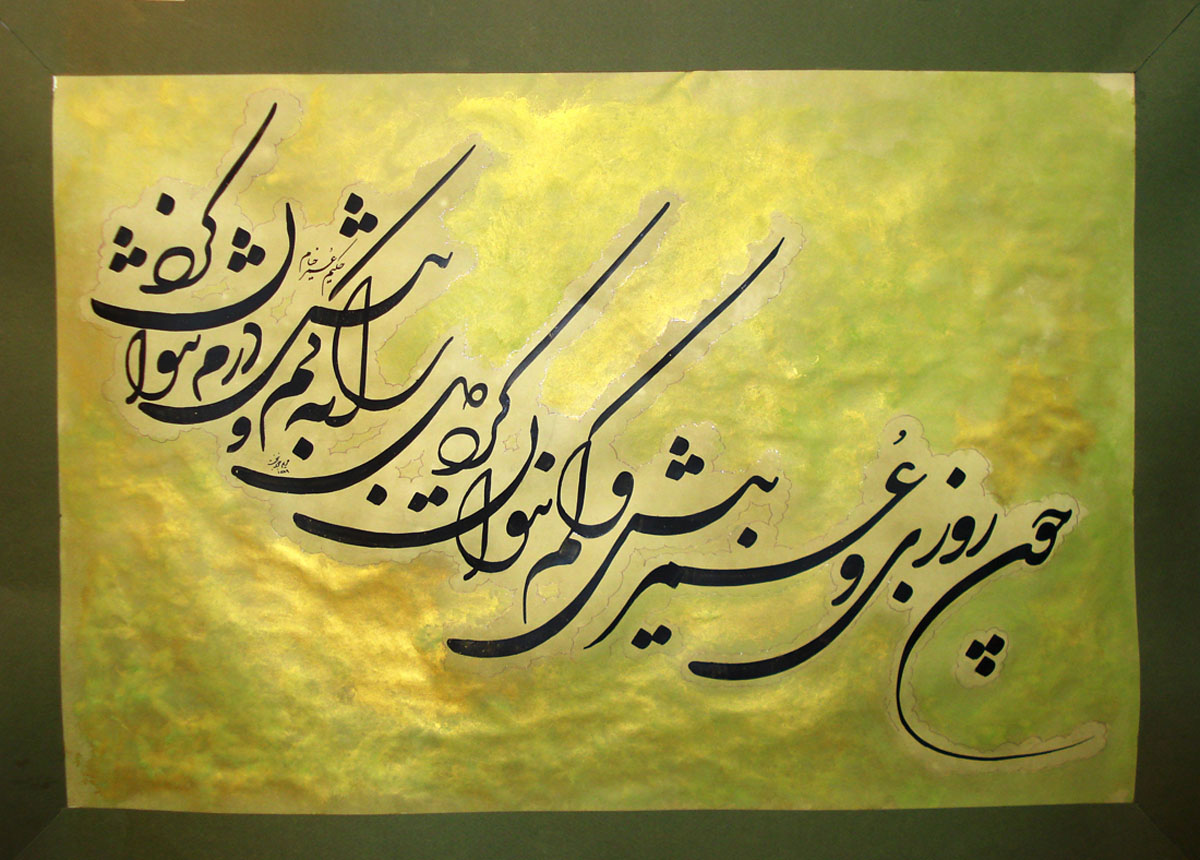 چون روزی و عُمر بیش و کم نتوان کرد
را به کم و بیش دژم نتوان کرد
حکیم عُمر خیام